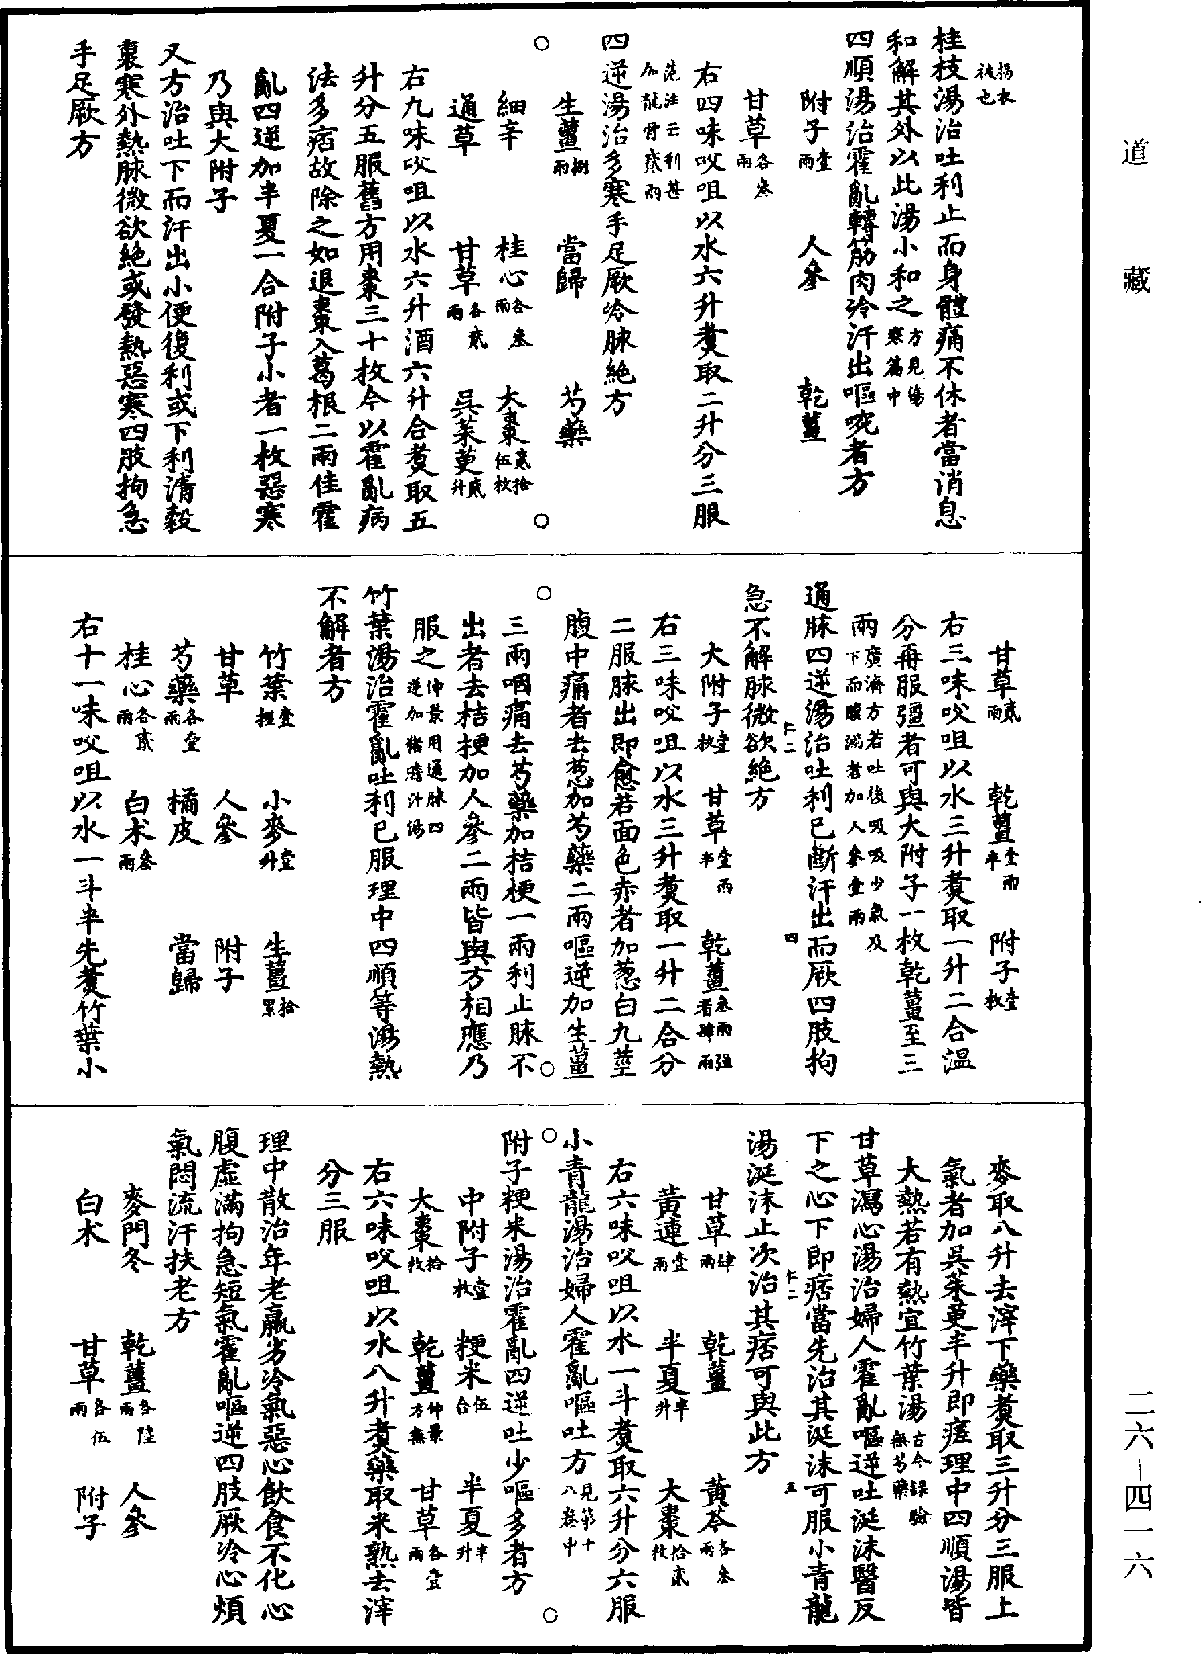 道藏
二六－四一六
揚衣
被也
桂枝湯治吐利止而身體痛不休者當消息
和解其外以此湯小和之方見傷寒篇中
四順湯治霍亂轉筋肉冷汗出嘔啘者方
附子壹兩 人參 乾薑
甘草各叁兩
右四味㕮咀以水六升煮取二升分三服
范汪云利甚加龍骨貳兩
四逆湯治多寒手足厥冷脉絶方
生薑 當歸 芍藥
細辛 桂心各叁兩 大棗貳拾伍枚
通草 甘草各貳兩 吳茱萸貳升
右九味㕮咀以水六升酒六升合煮取五
升分五服舊方用棗三十枚今以霍亂病
法多痞故除之如退棗入葛根二兩佳霍
亂四逆加半夏一合附子小者一枚惡寒
乃與大附子
又方治吐下而汗出小便復利或下利清穀
裏寒外熱脉微欲絶或發熱惡寒四肢拘急
手足厥方
甘草貳兩 乾薑壹兩半 附子壹枚
右三味㕮咀以水三升煮取一升二合溫
分再服彊者可與大附子一枚乾薑至三
兩廣濟方若吐後吸吸少氣及下而腹滿者加人參壹兩
通脉四逆湯治吐利已斷汗出而厥四肢拘
急不解脉微欲絶方
卞二 四
大附子壹枚 甘草壹兩半 乾薑叁兩强者肆兩
右三味㕮咀以水三升煮取一升二合分
二服脉出即愈若面色赤者加葱白九莖
腹中痛者去葱加芍藥二兩嘔逆加生薑
三兩咽痛去芍藥加桔梗一兩利止脉不
出者去桔梗加人參二兩皆與方相應乃
服之仲景用通脉四逆加猪膽汁湯
竹葉湯治霍亂吐利已服理中四順等湯熱
不解者方
竹葉壹握 小麥壹升 生薑拾累
甘草 人參 附子
芍藥各壹兩 橘皮 當歸
桂心各貳兩 白朮叁兩
右十一味㕮咀以水一斗半先煮竹葉小
麥取八升去滓下藥煮取三升分三服上
氣者加吳茱萸半升即瘥理中四順湯皆
大熱若有熱宜竹葉湯古今録驗無芍藥
甘草瀉心湯治婦人霍亂嘔逆吐涎沫醫反
下之心下即痞當先治其涎沫可服小青龍
湯涎沫止次治其痞可與此方
卞二 五
甘草肆兩 乾薑 黃芩各叁兩
黃連壹兩 半夏半升 大棗拾貳枚
右六味㕮咀以水一斗煮取六升分六服
小青龍湯治婦人霍亂嘔吐方見第十八卷中
附子粳米湯治霍亂四逆吐少嘔多者方
中附子壹枚 粳米伍合 半夏半升
大棗拾枚 乾薑仲景方無 甘草各壹兩
右六味㕮咀以水八升煮藥取米熟去滓
分三服
理中散治年老羸劣冷氣惡心飲食不化心
腹虛滿拘急短氣霍亂嘔逆四肢厥冷心煩
氣悶流汗扶老方
麥門冬 乾薑各陸兩 人參
白朮 甘草各伍兩 附子